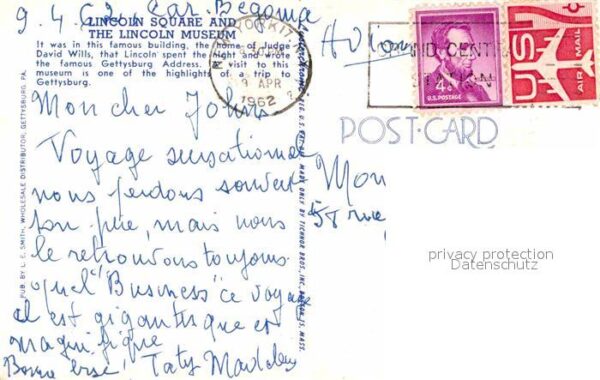 9.4.62. Car
LINCOLN SQUARE AND
THE LINCOLN MUSEUM
It was in this famous building, the home of Judge
David Wills, that Lincoln spent the night and wrote
the famous Gettysburg Address. A visit to this
museum is one of the highlights of a trip to
Gettysburg.
Mon cher Johny
Voyage sensationnel
nous perdons souvent
ton père, mais nous
le retrouvons toujours.
quel "Business" ce voyage
il est gigantesque et
magnifique
Bonne Taty
PUB. BY L. E. SMITH, WHOLESALE DISTRIBUTOR, GETTYSBURG, PA.
MADE ONLY BY TICHNOR BROS., INC., BOSTON 15, MASS.
9 APR
1962
GRAND CENTRAL
STATION
4¢
U.S. POSTAGE
US
AIR MAIL
7¢
POST-CARD
Mon
58 rue
privacy protection
Datenschutz